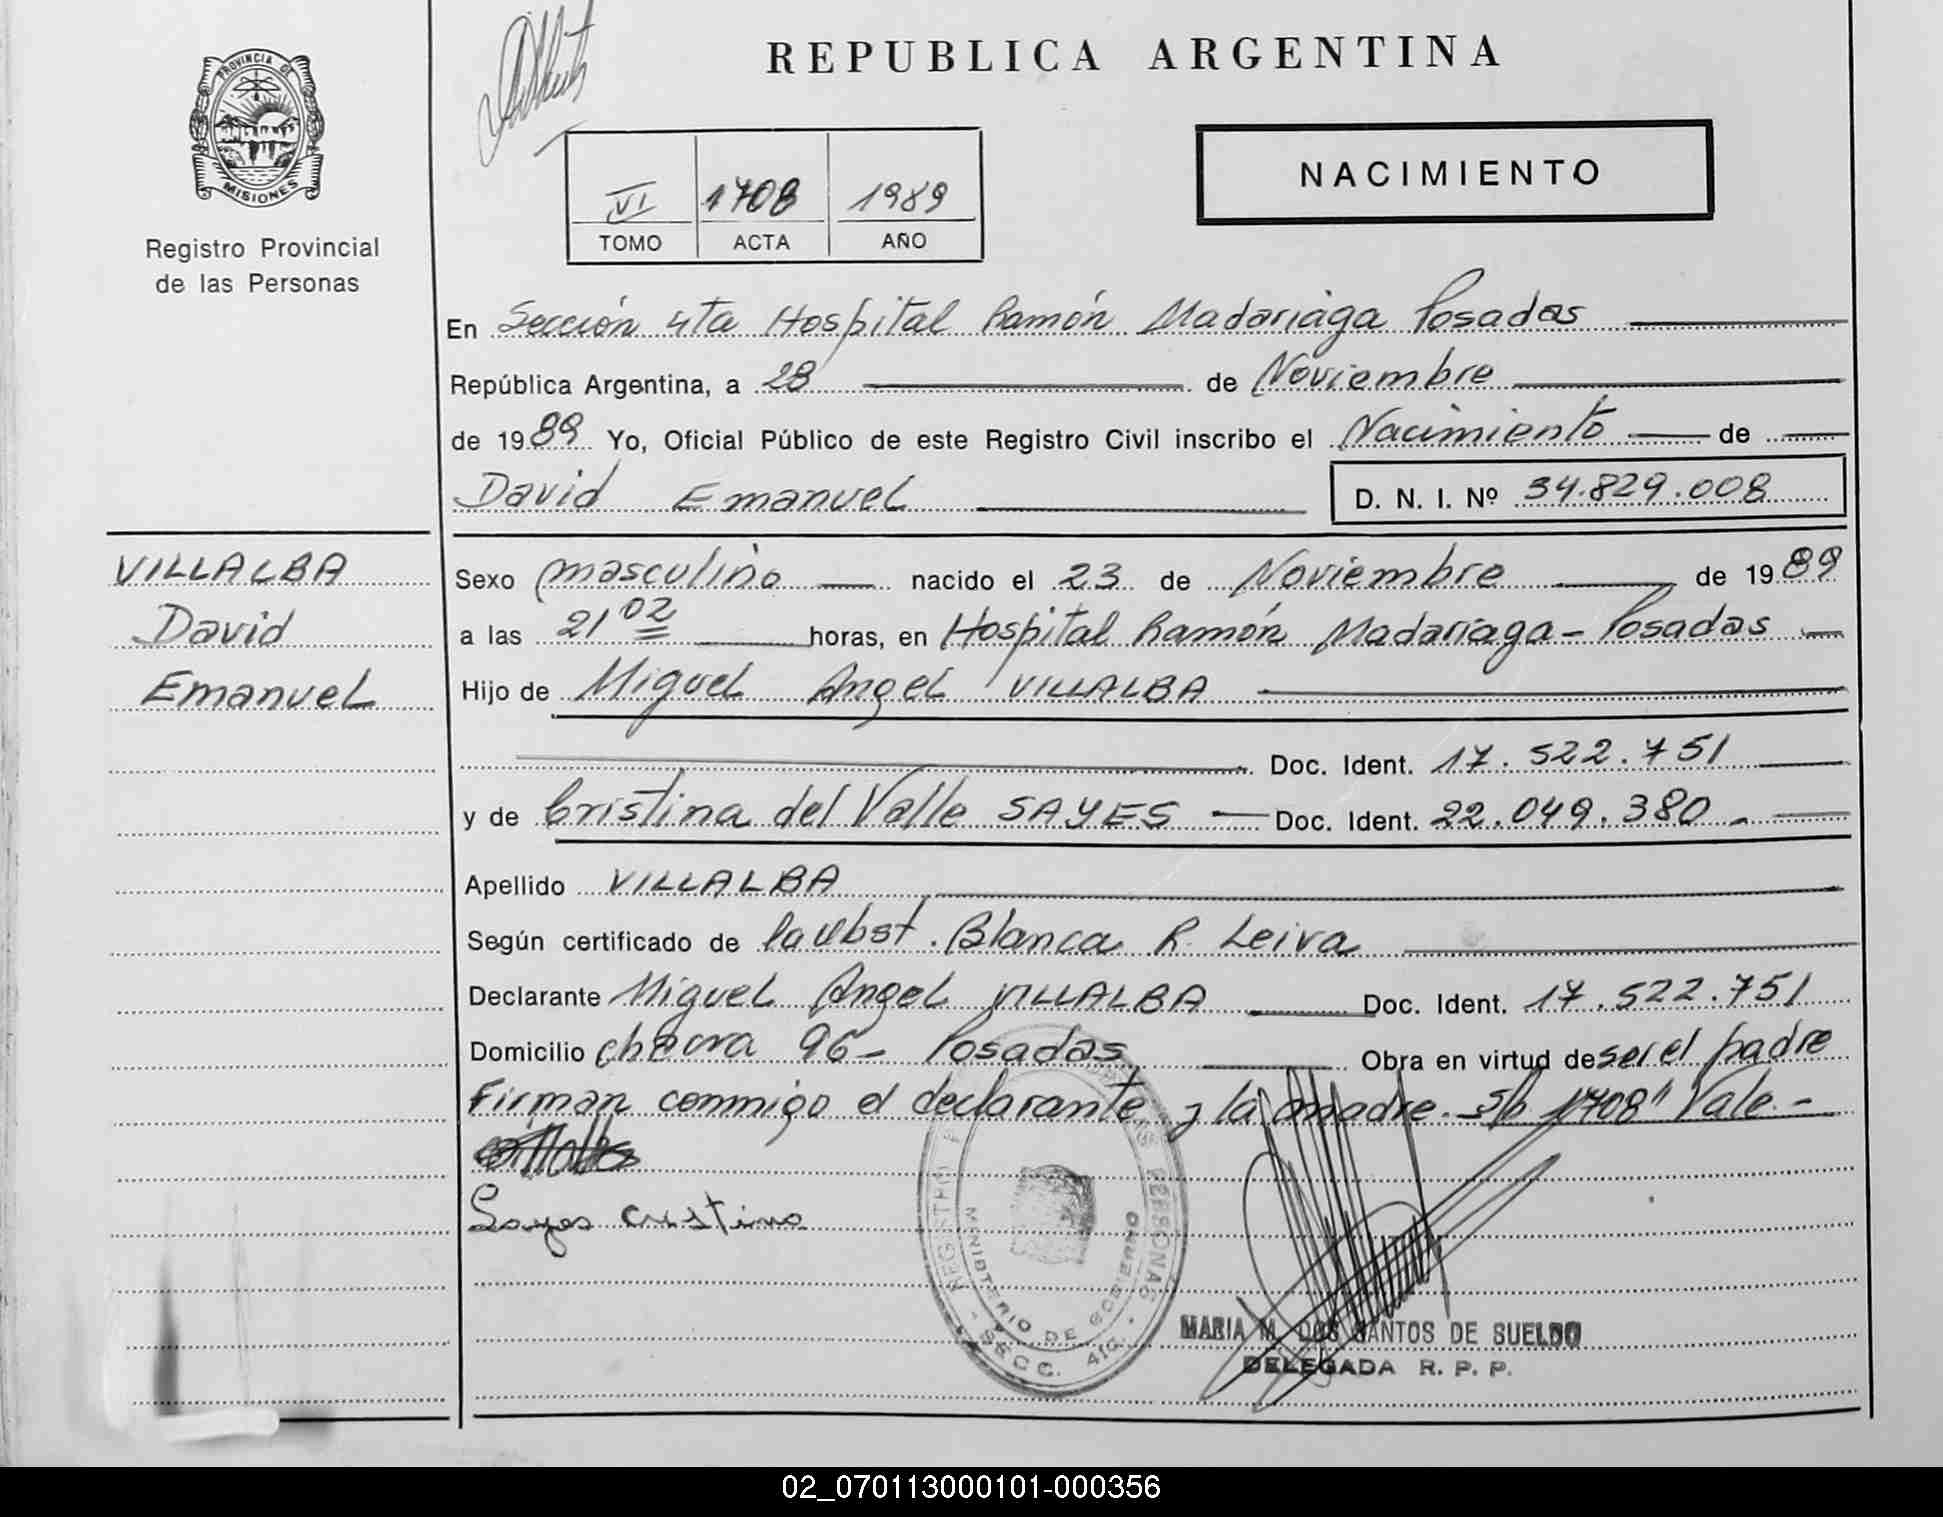 PROVINCIA DE
MISIONES
Registro Provincial
de las Personas
REPUBLICA ARGENTINA
NACIMIENTO
VI 1708 1989
TOMO ACTA AÑO
En Sección 4ta Hospital Ramón Madariaga Posadas
República Argentina, a 28 de Noviembre
de 1989 Yo, Oficial Público de este Registro Civil inscribo el Nacimiento de
David Emanuel D. N. I. Nº 34.829.008
VILLALBA
David
Emanuel
Sexo masculino nacido el 23 de Noviembre de 1989
a las 21 02 horas, en Hospital Ramón Madariaga - Posadas
Hijo de Miguel Angel VILLALBA
Doc. Ident. 17.522.751
y de Cristina del Valle SAYES Doc. Ident. 22.049.380.-
Apellido VILLALBA
Según certificado de Blanca R. Leiva
Declarante Miguel Angel VILLALBA Doc. Ident. 17.522.751
Domicilio chacra 96- Posadas Obra en virtud de ser el padre
Firman conmigo el declarante y la madre. s/b 1708" Vale.-
Sayes Cristina
REGISTRO PERSONAS
MINISTERIO DE GOBIERNO
- SECC. 4ta. -
MARIA M. DOS SANTOS DE SUELDO
DELEGADA R. P. P.
02_070113000101-000356